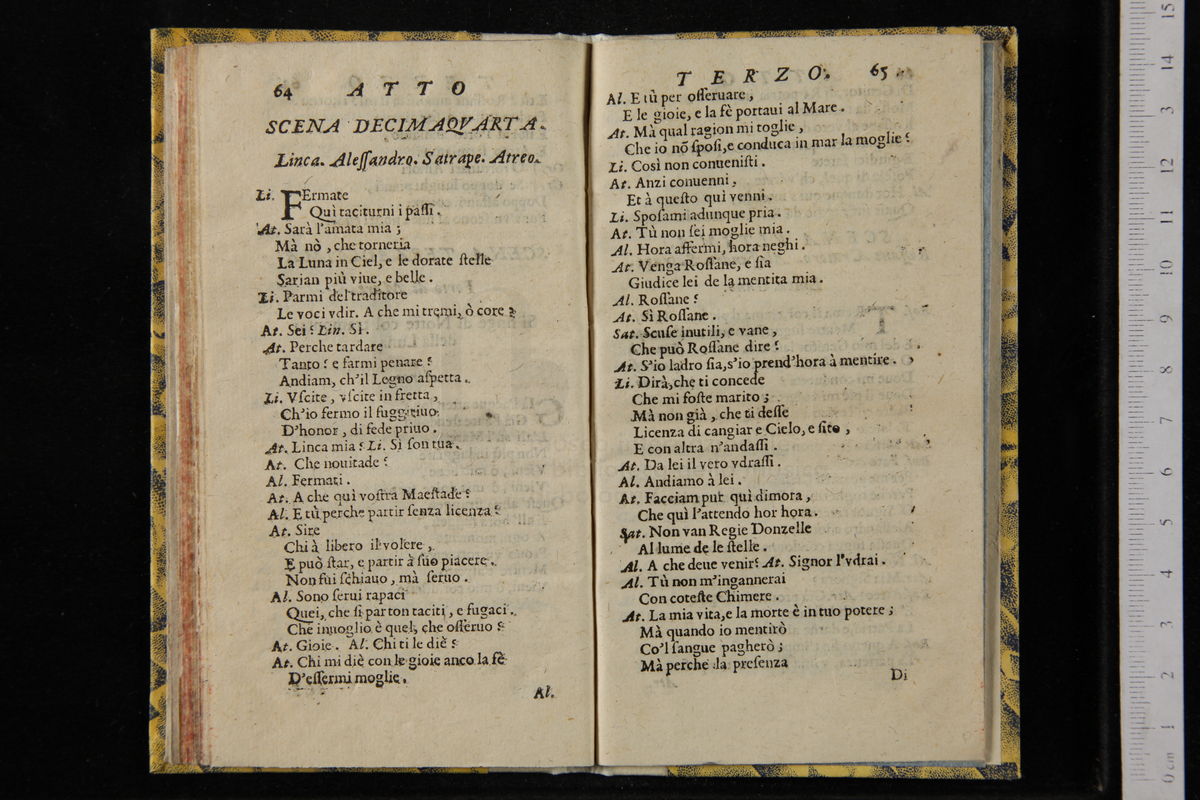 64 ATTO
SCENA DECIMAQVARTA.
Linca. Aleſſandro. Satrape. Atreo.
Li. FErmate
Quì taciturni i paſſi.
At. Sarà l'amata mia ;
Mà nò , che torneria
La Luna in Ciel, e le dorate ſtelle
Sarian più viue, e belle .
Li. Parmi del traditore
Le voci vdir. A che mi tremi, ò core ?
At. Sei ? Lin. Sì .
At. Perche tardare
Tanto ? e farmi penare ?
Andiam, ch'il Legno aſpetta .
Li. Vſcite , vſcite in fretta ,
Ch'io fermo il fuggitiuo
D'honor , di fede priuo .
At. Linca mia ? Li. Sì ſon tua .
At. Che nouitade ?
Al. Fermati .
At. A che quì voſtra Maeſtade ?
Al. E tù perche partir ſenza licenza ?
At. Sire
Chi à libero il volere ,
E può ſtar, e partir à ſuo piacere .
Non fui ſchiauo , mà ſeruo .
Al. Sono ſerui rapaci
Quei, che ſi parton taciti , e fugaci .
Che inuoglio è quel, che oſſeruo ?
At. Gioie . Al. Chi ti le diè ?
At. Chi mi diè con le gioie anco la fè
D'eſſermi moglie .
Al.
TERZO. 65
Al. E tù per oſſeruare ,
E le gioie, e la fè portaui al Mare .
At. Mà qual ragion mi toglie ,
Che io nõ ſpoſi, e conduca in mar la moglie ?
Li. Così non conueniſti .
At. Anzi conuenni ,
Et à queſto quì venni .
Li. Spoſami adunque pria .
At. Tù non ſei moglie mia .
Al. Hora affermi, hora neghi .
At. Venga Roſſane, e ſia
Giudice lei de la mentita mia .
Al. Roſſane ?
At. Sì Roſſane .
Sat. Scuſe inutili, e vane ,
Che può Roſſane dire ?
At. S'io ladro ſia, s'io prend'hora à mentire .
Li. Dirà, che ti concede
Che mi foſte marito ;
Mà non già , che ti deſſe
Licenza di cangiar e Cielo, e ſito ,
E con altra n'andaſſi .
At. Da lei il vero vdraſſi .
Al. Andiamo à lei .
At. Facciam pur quì dimora ,
Che quì l'attendo hor hora .
Sat. Non van Regie Donzelle
Al lume de le ſtelle .
Al. A che deue venir? At. Signor l'vdrai .
Al. Tù non m'ingannerai
Con coteſte Chimere .
At. La mia vita, e la morte è in tuo potere ;
Mà quando io mentirò
Co'l ſangue pagherò ;
Mà perche la preſenza
Di